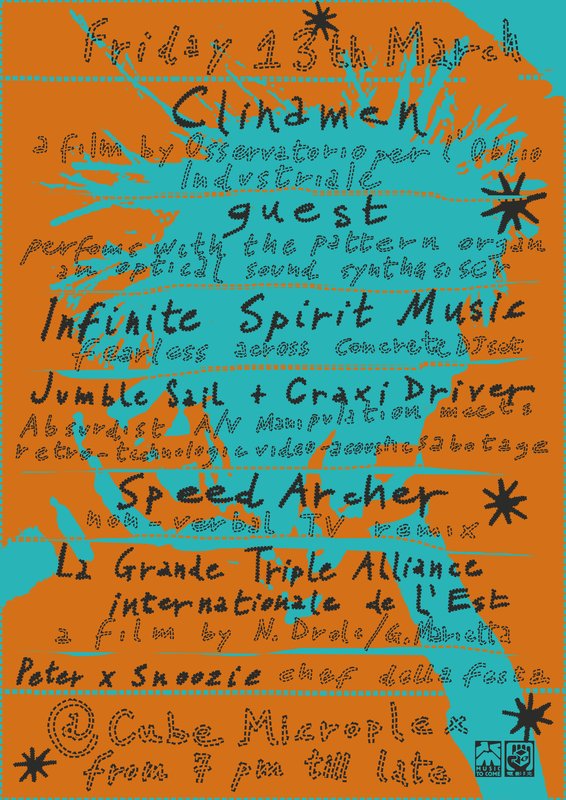 Friday 13th March
Clinamen
a film by Osservatorio per l'Oblio
Industriale
guest
perfome with the pattern organ
an optical sound synthesiser
Infinite Spirit Music
fearless across Concrete DJ set
Jumble Sail + Craxi Driver
Absurdist A/V Manipulation meets
retro-technologic video-acoustic sabotage
Speed Archer
non-verbal TV remix
La Grande Triple Alliance
internationale de l'Est
a film by N. Drolc/G. Marietta
Peter x Snoozie chef della festa
@ Cube Microplex
from 7 pm till late
MUSIC
TO COME